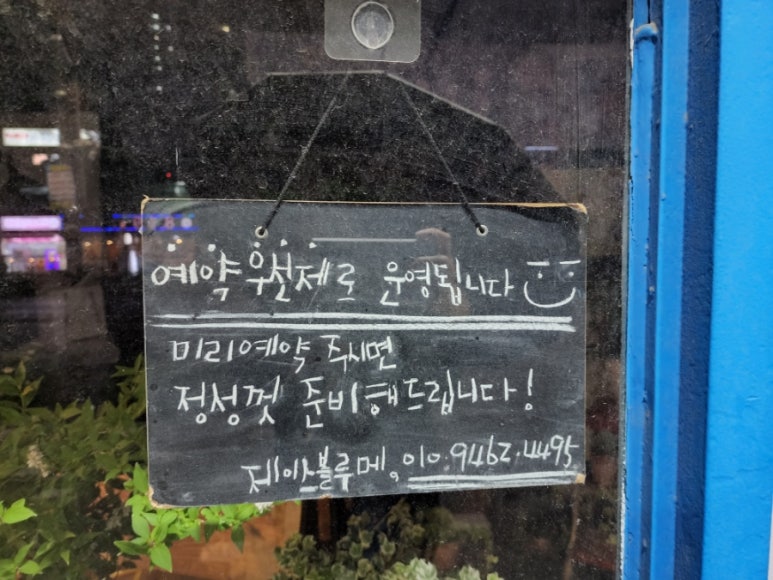 예약 우선제로 운영됩니다
미리예약 주시면
정성껏 준비해드립니다!
제이스블루메. 010.9462.4495